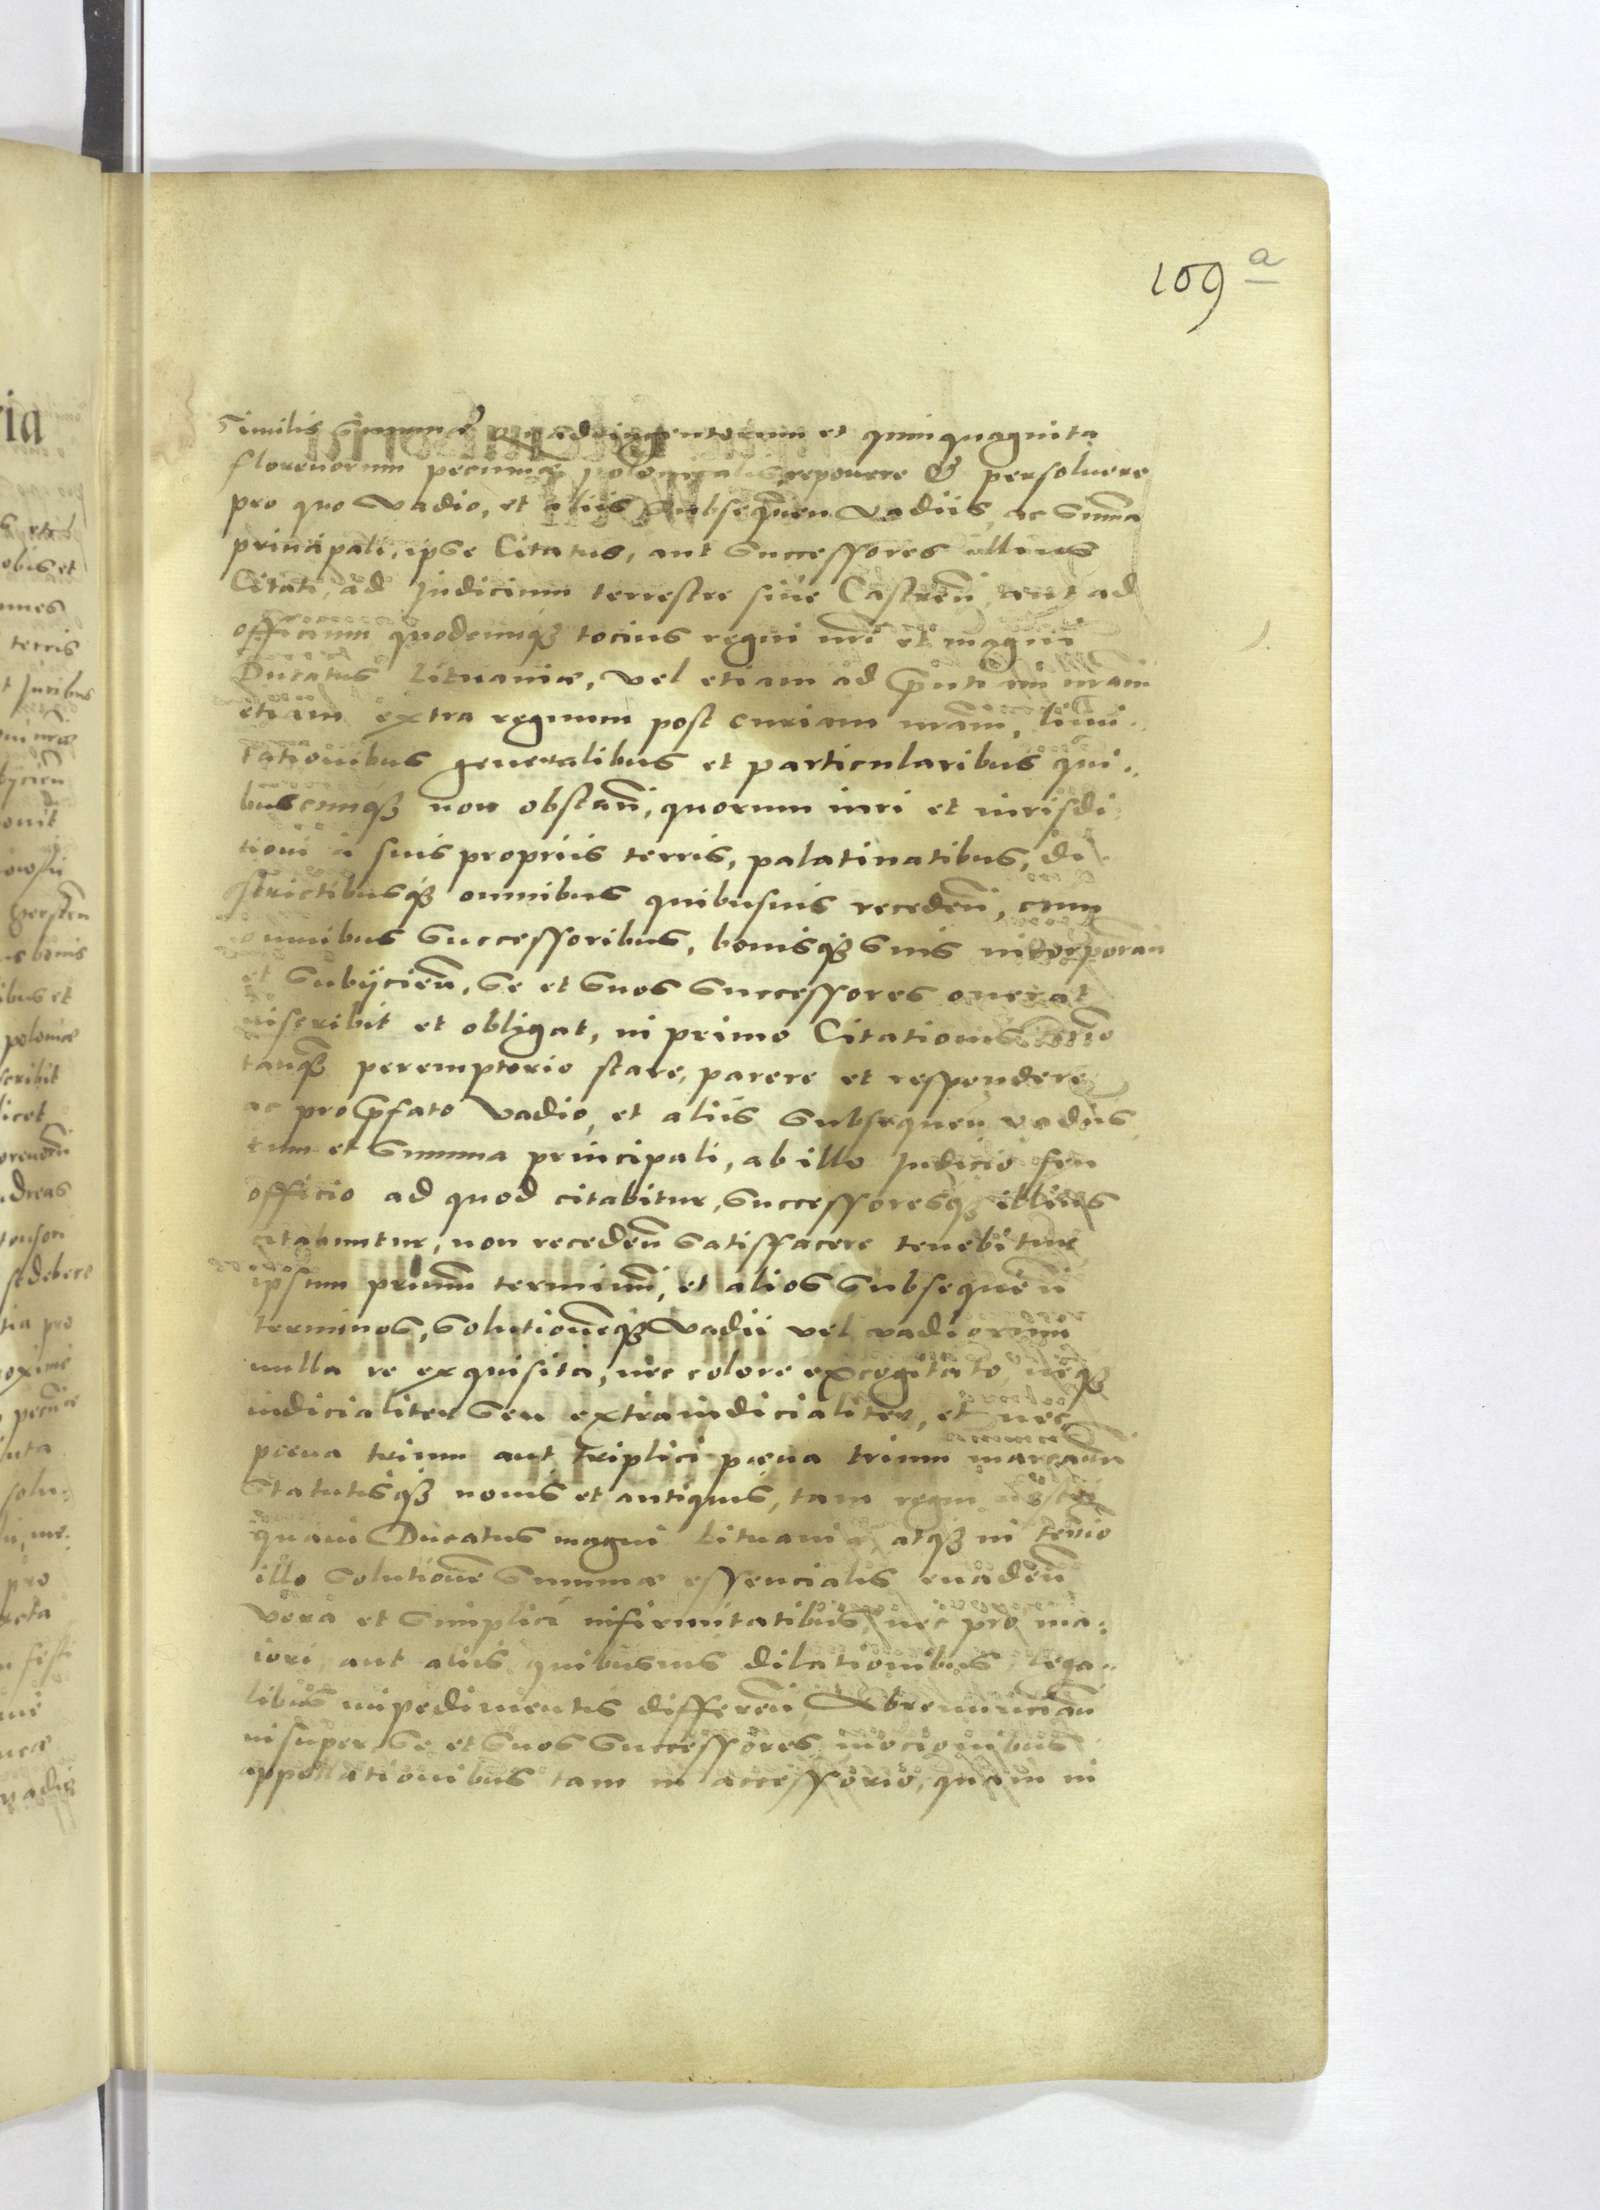 109 a
ria
similis summæ quadringentorum et quinquaginta
florenorum pecuniæ polonicalis, reponere & persoluere
pro quo vadio, et aliis subsequen̄ vadiis, ac summa
principali, ipse Citatus, aut successores illius
Citati, ad Judicium terrestre siue Castren̄, aut ad
officium quodcunqꝫ tocius regni nr̄i et magni
Ducatus Lituaniæ, vel etiam ad nr̄am
etiam extra regnum post curiam nr̄am, limi-
tationibus generalibus et particularibus qui-
buscunqꝫ non obstan̄, quorum iuri et iurisdi
tioni a suis propriis terris, palatinatibus, di
strictibusqꝫ omnibus quibusuis receden̄, cum
omnibus successoribus, bonisqꝫ suis incorporan̄
et subijcien̄, se et suos successores onerat
inscribit et obligat, in primo Citationis termino
tanqꝫ peremptorio stare, parere et respondere
ac pro prefato vadio, et aliis subsequen̄ vadiis
cum et summa principali, ab illo Judicio seu
officio ad quod citabitur, successoresqꝫ illius
citabuntur, non receden̄ satisfacere tenebitur
ipsum primum terminum, et alios subsequen̄
terminos, solutionemqꝫ vadii vel vadiorum
nulla re exquisita, nec colore excogitato, neqꝫ
iudicialiter seu extraiudicialiter, et nec
pœna trium aut triplici pæna trium marcarum
statutisqꝫ nouis et antiquis, tam regni nostri
quam Ducatus magni Lituaniæ, atqꝫ in ter̄io
illo solutione summæ essencialis euaden̄
vera et simplici infirmitatibus, nec pro ma-
iori, aut aliis quibusuis dilationibus, lega-
libus impedimentis differen̄, Abrenuncian̄
insuper se et suos successores mocionibus
appellationibus tam in accessorio, quam in